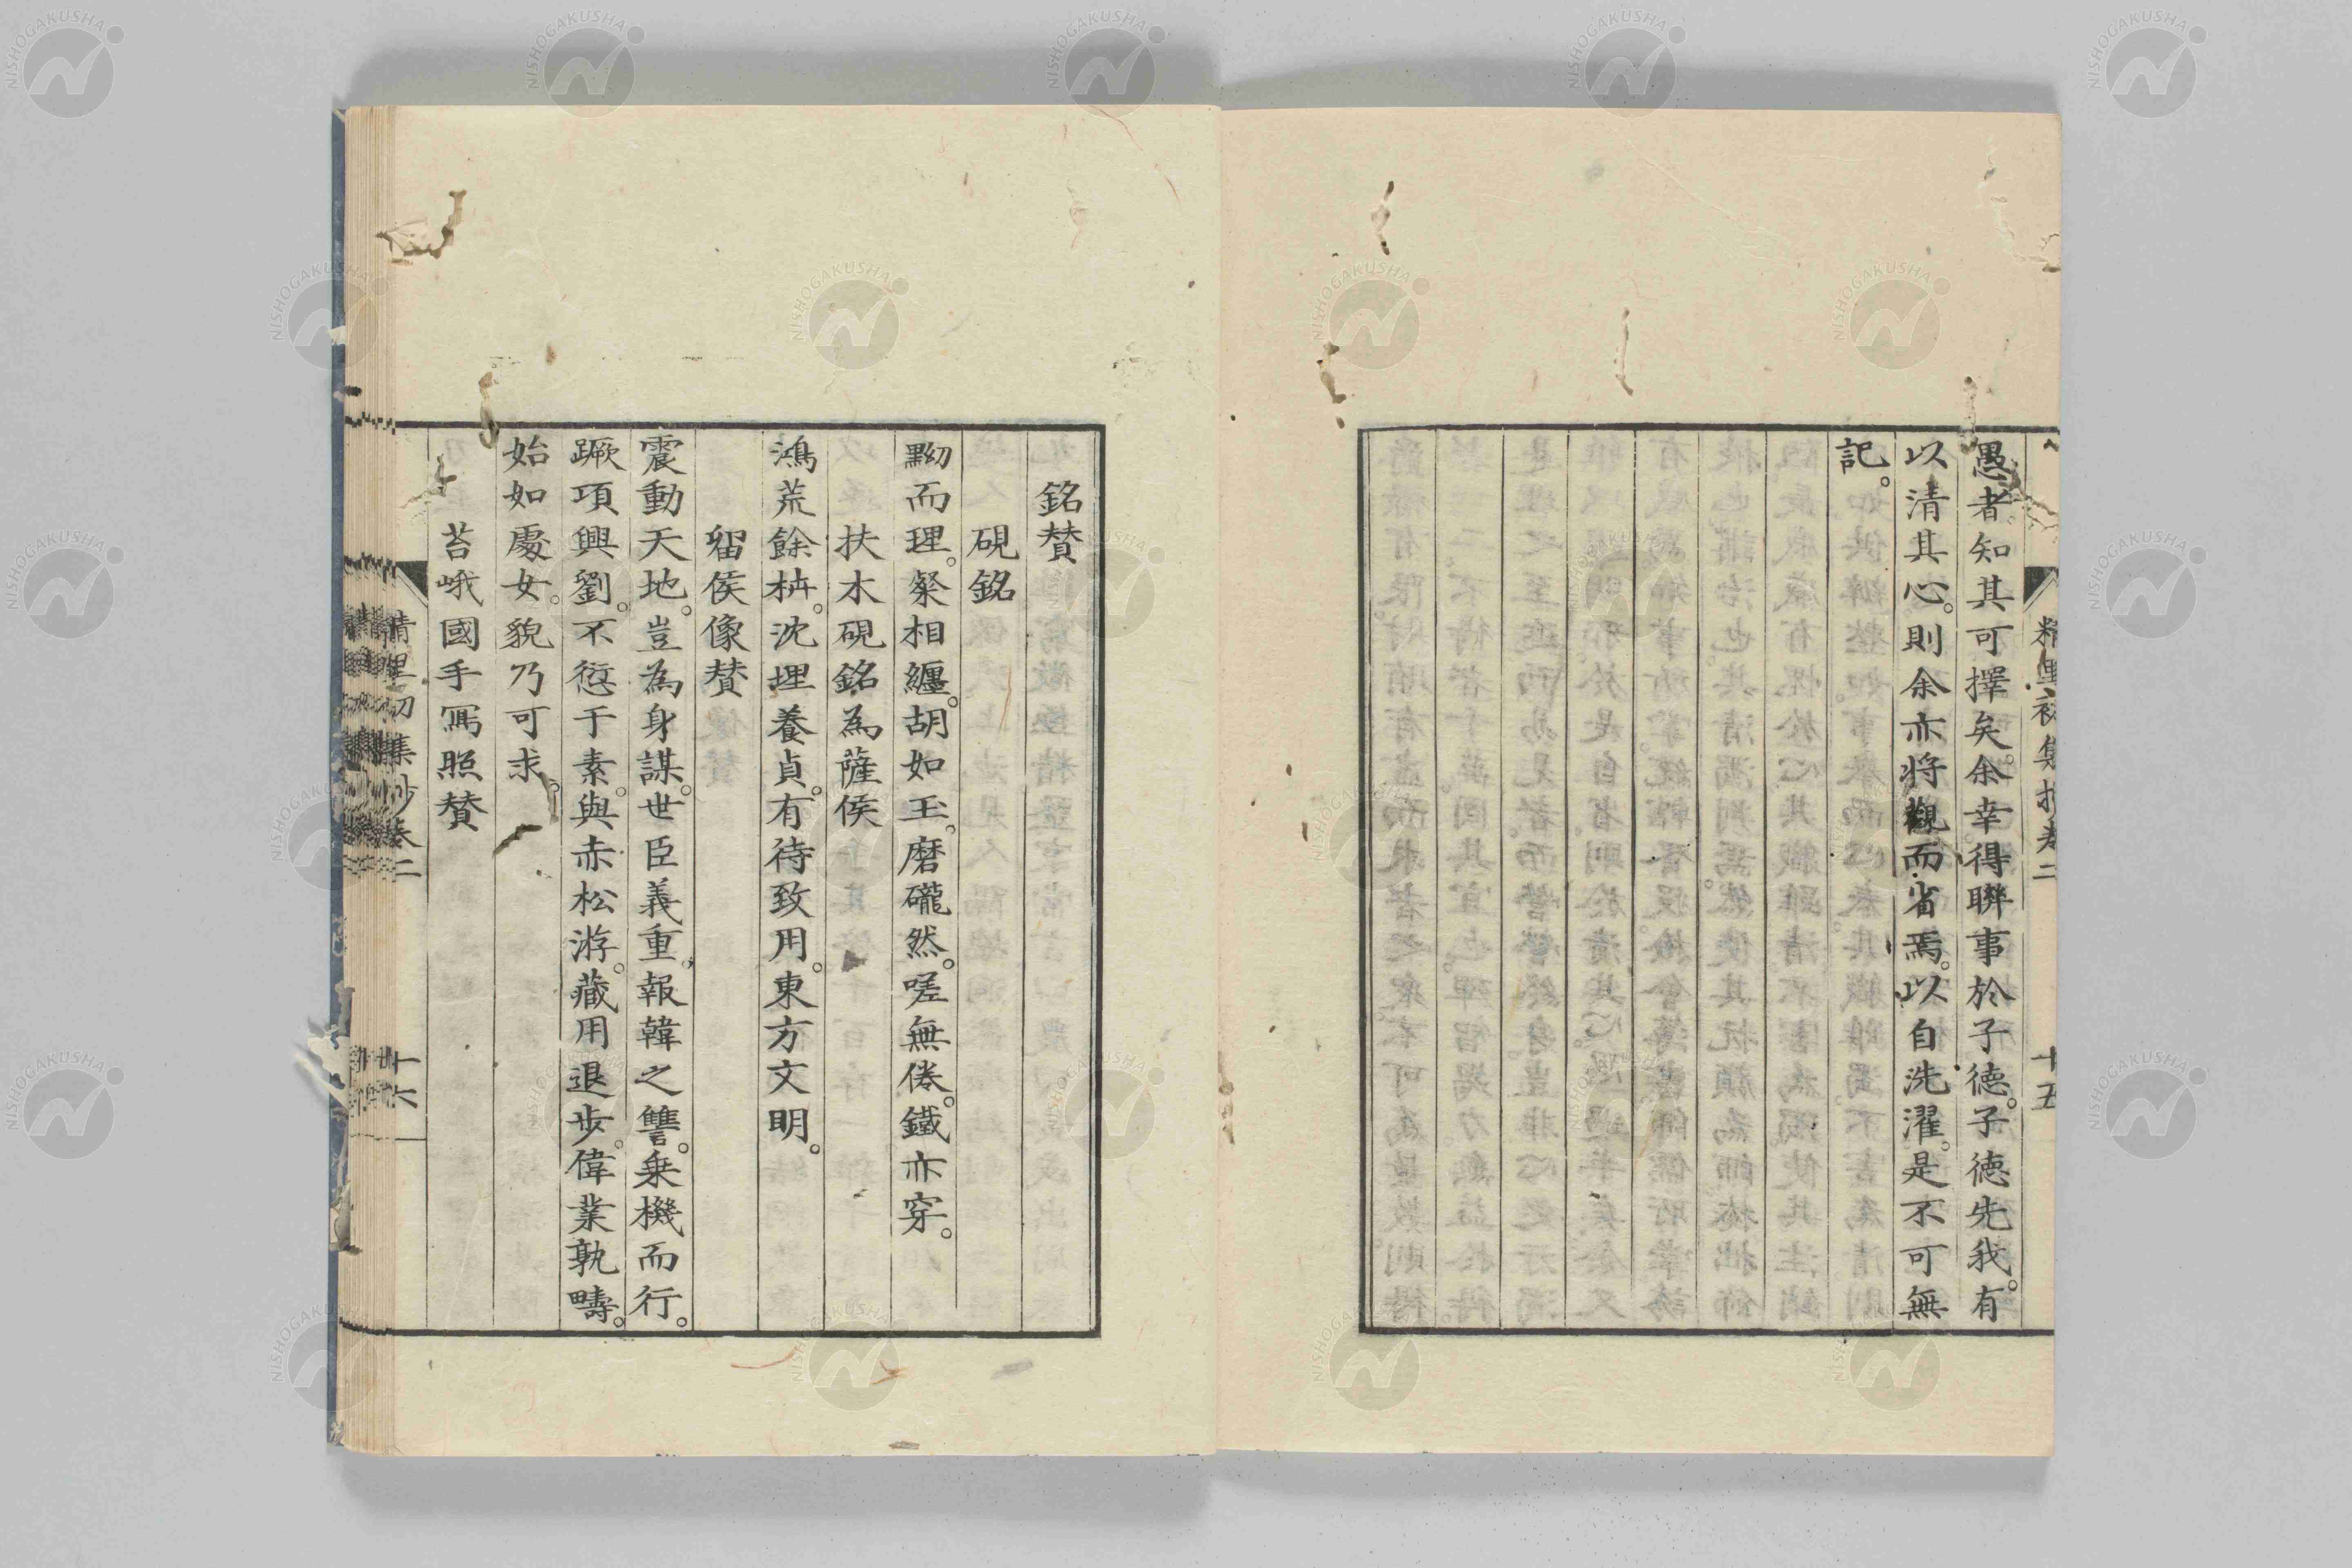 精里初集抄卷二
十五
愚者。知其可擇矣。余幸得聯事於子德。子德先我。有
以清其心。則余亦将觀而省焉。以自洗濯。是不可無
記。
銘賛
硯銘
黝而理。粲相纏。胡如玉。磨礲然。嗟無倦。鐵亦穿。
扶木硯銘為薩侯
鴻荒餘枿。沈埋養貞。有待致用。東方文明。
留侯像賛
震動天地。豈為身謀。世臣義重。報韓之讐。乗機而行。
蹶項興劉。不愆于素。與赤松游。藏用退步。偉業孰疇。
始如處女。貌乃可求。
苔峨國手寫照賛
精里初集抄卷二
十六
NISHOGAKUSHA